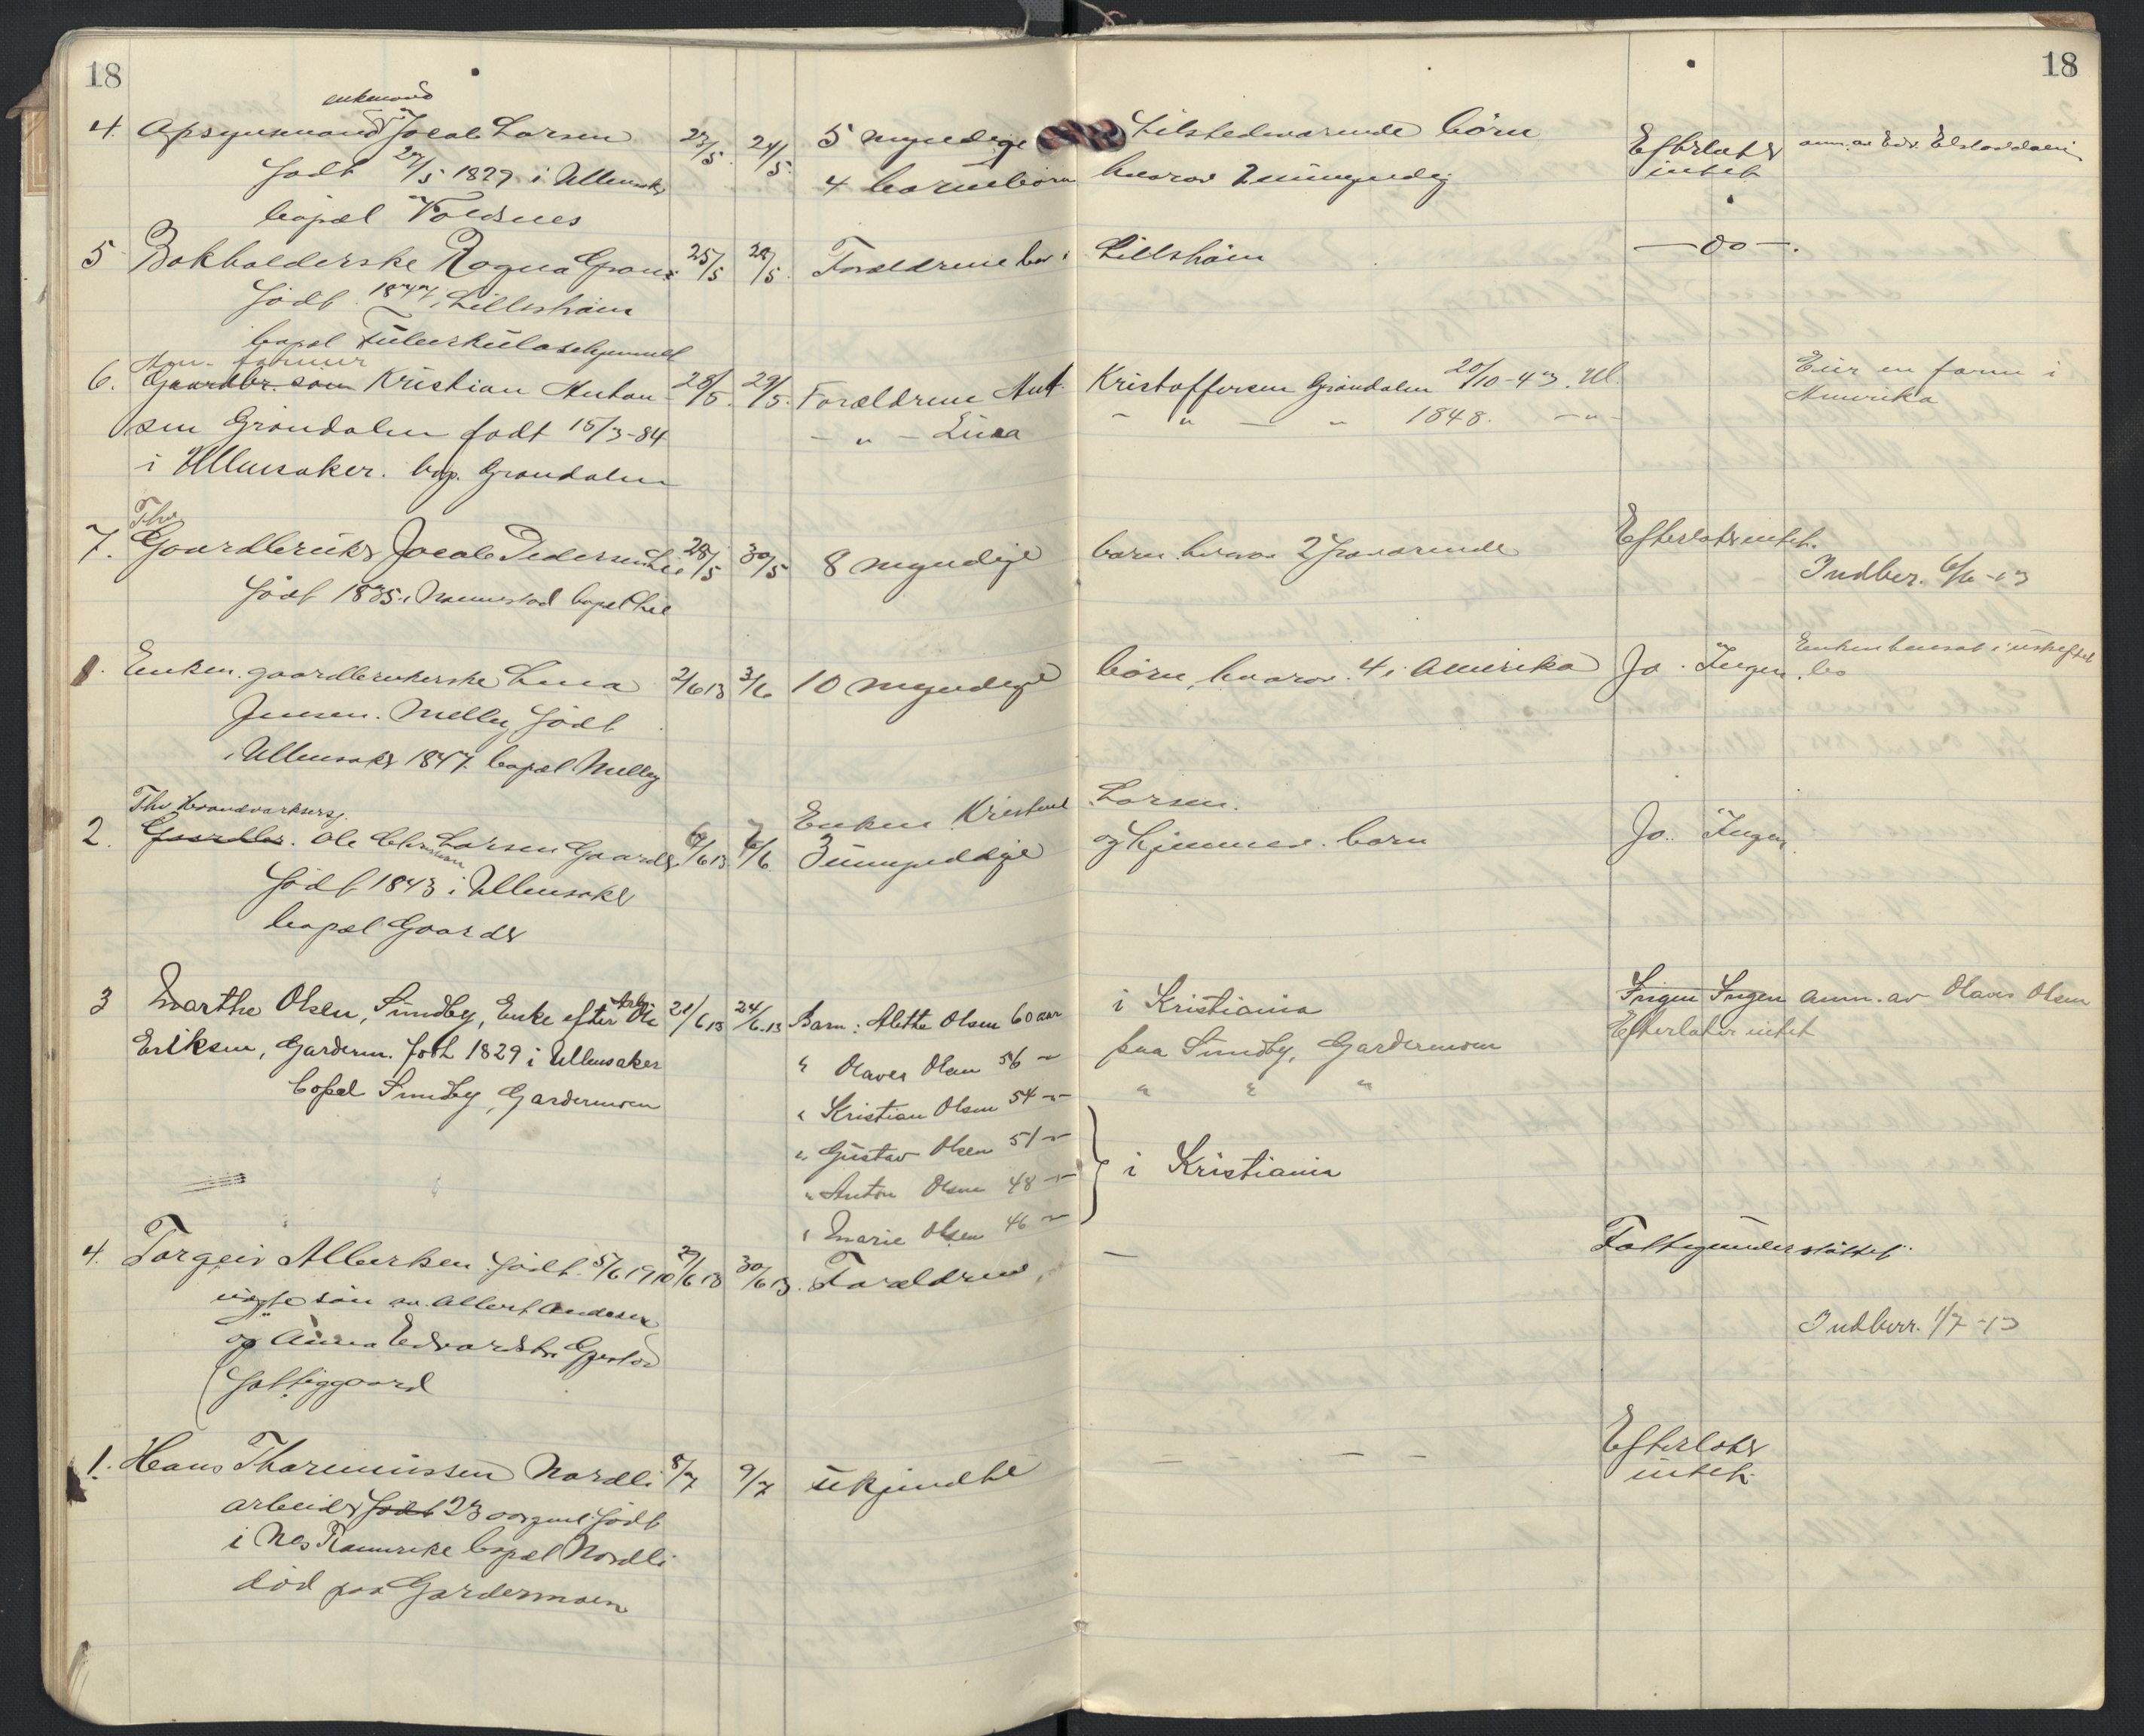 18
18
enkemand
4. Opsynsmand Jacob Larsen 23/5. 24/5. 5 myndige tilstedværende børn Efterlater anm. av Edv.
født 27/5 1829 i Ullensaker 4 barnebørn hvorav 2 umyndig intet
bopæl
5 Bokholderske Ragna 25/5 28/5. Forældrene bor i Lilleh̄am — do —.
født 1877 i Lilleham
bopæl Tuberkulosehjemmet
farmer
6. Gaardbr. søn Kristian Anton- 28/5. 29/5. Forældrene Ant. Kristoffersen Grøndalen 20/10-43. Ul. Eier en farm i
sen Grøndalen født 15/3-84 — „ — Lina „ — „ 1848. — „ — Amerika
i Ullensaker. bop. Grøndalen
Fhv
7. Gaardbruker Jacob Pedersen Lie 28/5 30/5 8 myndige børn hvorav 2 fraværende Efterlater intet.
født 1835 i Nannestad bopæl Lie Indber. 6/6-13
1. Enken gaardbrukerske Lina 2/6 13 3/6 10 myndige børn, hvorav 4 i Amerika Jo. Ingen. Enken hensat i uskiftet bo
Jensen. Melby født
i Ullensaker 1847. bopæl Melby
Fhv Haandverksersj.
2. Gaardbr. Ole Larsen Gaarder 6/6 13 7/6 Enken Kristine Larsen.
3 umyndige og hjemmev. børn Jo. Ingen.
født 1843 i Ullensaker
bopæl Gaarder
3 Marthe Olsen, Sundby, Enke efter Arb. Ole 21/6 13 24/6.13 Barn: Alette Olsen 60 aar i Kristiania Ingen Ingen anm. av Olaves Olsen
Eriksen, Garderm. født 1829 i Ullensaker " Olaves Olsen 56 — paa Sundby, Gardermoen Efterlater intet
bopæl Sundby, Gardermoen " Kristian Olsen 54 — " " "
" Gustav Olsen 51 —
" Anton Olsen 48 — i Kristiania
" Marie Olsen 46 —
4. Torgeir Albertsen født 5/6 1910 29/6 13 30/6 13. Forældrene — Fattigunderstøttet.
ægte søn av Albert Andersen
og Anna Edvardsdtr. Indberr. 1/7-13
Fattiggaard
1. Hans Nordli 8/7 9/7 ukjendte — — — — Efterlater
arbeider født 23 aar gml. født intet.
i Nes Romerike bopæl Nordli
død paa Gardermoen